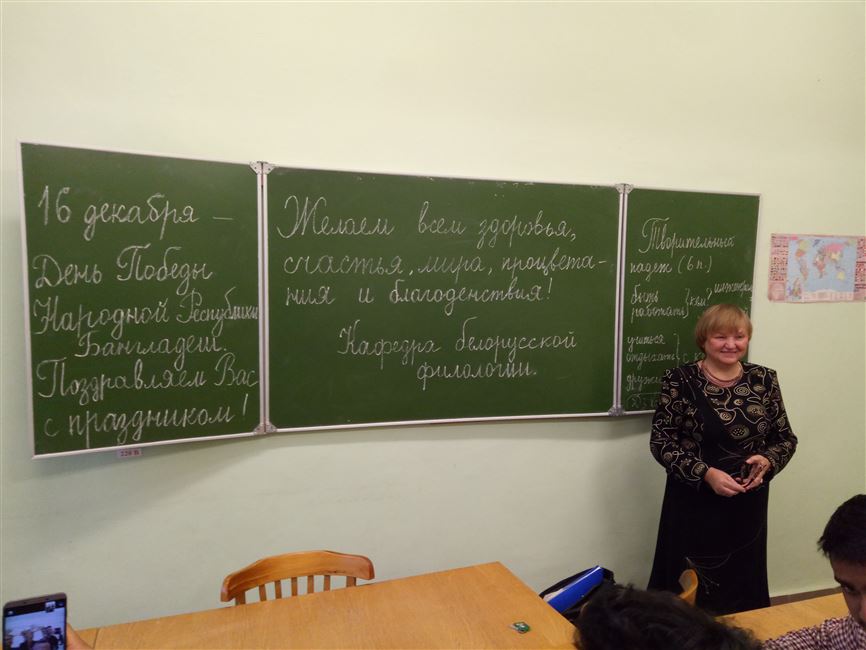 16 декабря –
День Победы
Народной Республики
Бангладеш.
Поздравляем Вас
с праздником!
Желаем всем здоровья,
счастья, мира, процвета-
ния и благоденствия!
Кафедра белорусской
филологии.
Творительный
падеж (6 п.)
быть
работать} {кем?
учиться
отдыхать}